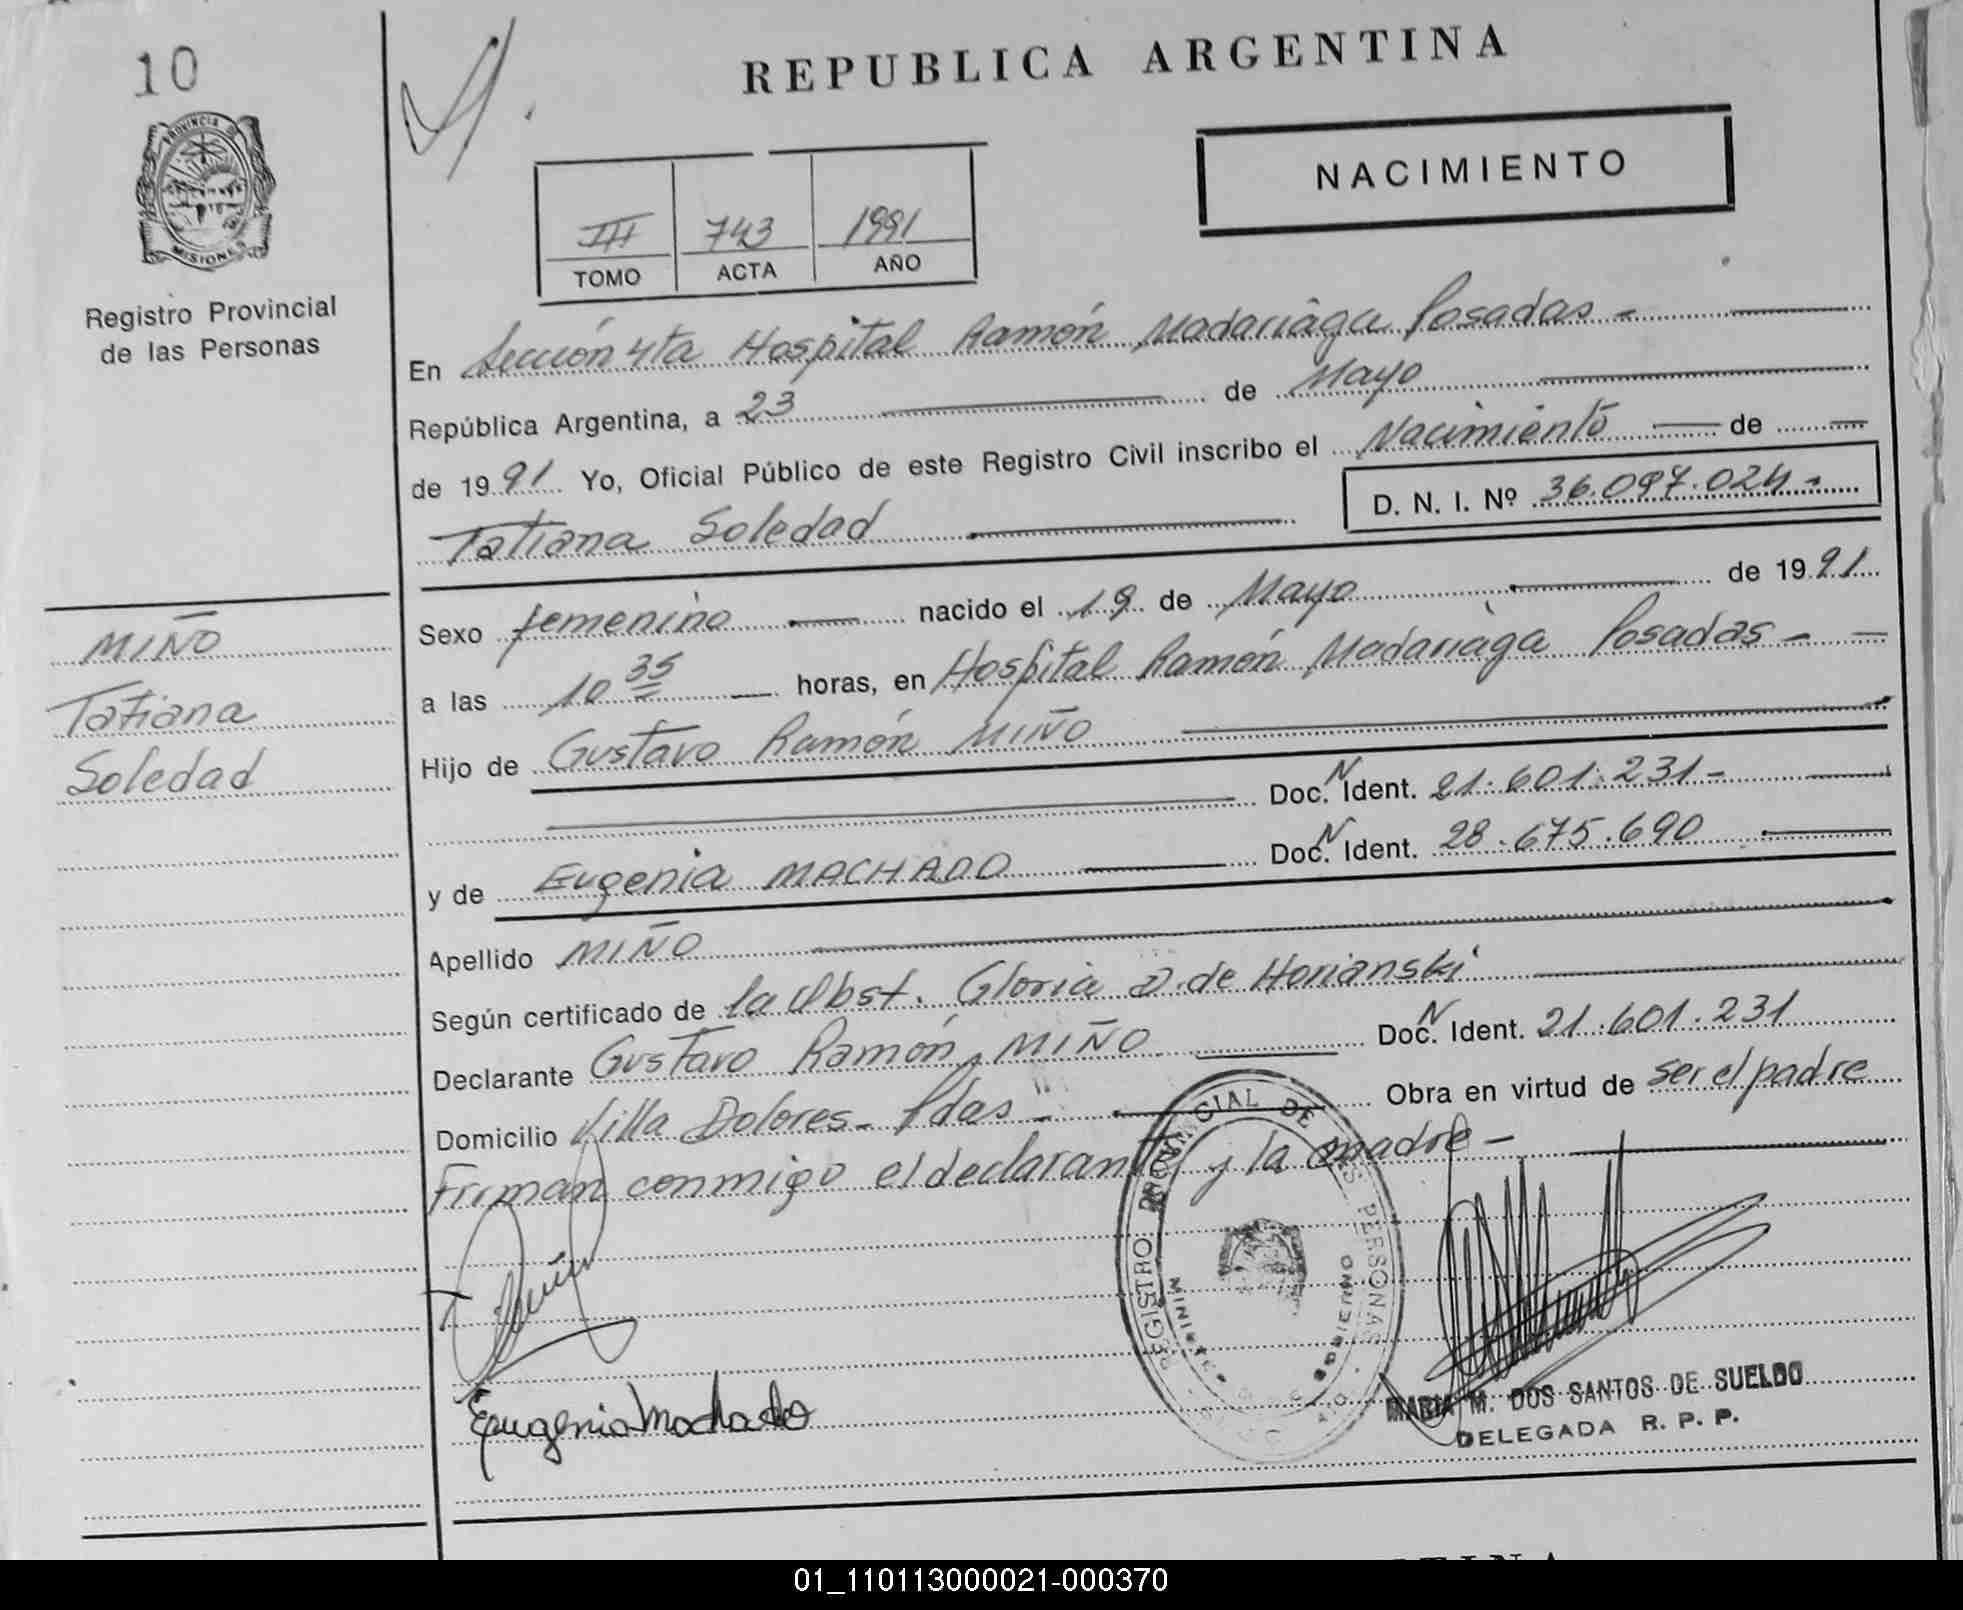 10
REPUBLICA ARGENTINA
PROVINCIA D
MISIONES
NACIMIENTO
III 743 1991
TOMO ACTA AÑO
Registro Provincial
de las Personas
En Sección 4ta Hospital Ramón Madariaga Posadas -
República Argentina, a 23 de Mayo
de 1991. Yo, Oficial Público de este Registro Civil inscribo el Nacimiento de
Tatiana Soledad D. N. I. Nº 36.097.024-
MIÑO
Tatiana
Soledad
Sexo femenino nacido el 19 de Mayo de 1991
a las 10 35 horas, en Hospital Ramón Madariaga Posadas -
Hijo de Gustavo Ramón MIÑO
Doc. N Ident. 21.601.231-
y de Eugenia MACHADO Doc. N Ident. 28.675.690
Apellido MIÑO
Según certificado de la Obst. Gloria D. de Horianski
Declarante Gustavo Ramón MIÑO Doc. N Ident. 21.601.231
Domicilio Villa Dolores - Pdas - Obra en virtud de ser el padre
Firman conmigo el declarante y la madre -
REGISTRO PROVINCIAL DE LAS PERSONAS
Eugenia Machado
MARIA M. DOS SANTOS DE SUELDO
DELEGADA R. P. P.
01_110113000021-000370